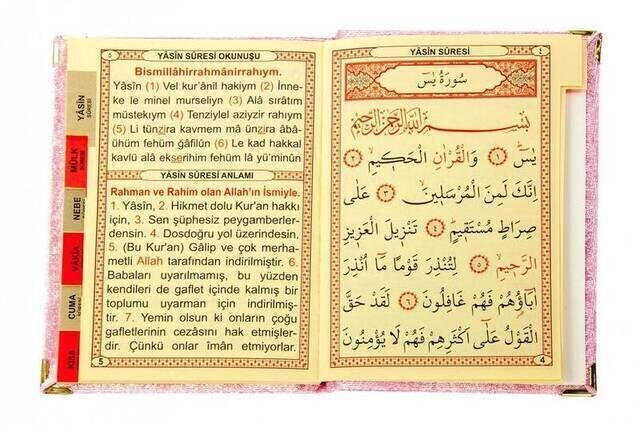 YÂSİN SÛRESİ OKUNUŞU
Bismillâhirrahmânirrahıym.
Yâsîn (1) Vel kur'ânil hakiym (2) İnne-
ke le minel murseliyn (3) Alâ sırâtım
müstekıym (4) Tenziylel aziyzir rahıym
(5) Li tünzira kavmem mâ ünzira âbâ-
ühüm fehüm ğâfilûn (6) Le kad hakkal
kavlü alâ ekserihim fehüm lâ yü'minûn
YÂSİN SÛRESİ ANLAMI
Rahman ve Rahim olan Allah'ın İsmiyle.
1. Yâsîn, 2. Hikmet dolu Kur'an hakkı
için, 3. Sen şüphesiz peygamberler-
densin. 4. Dosdoğru yol üzerindesin.
5. (Bu Kur'an) Gâlip ve çok merha-
metli Allah tarafından indirilmiştir. 6.
Babaları uyarılmamış, bu yüzden
kendileri de gaflet içinde kalmış bir
toplumu uyarman için indirilmiş-
tir. 7. Yemin olsun ki onların çoğu
gafletlerinin cezasını hak etmişler-
dir. Çünkü onlar îman etmiyorlar.
5
YÂSİN SÛRESİ
MÜLK SÛRESİ
NEBE
VAKIA
CUMA
KISA
YÂSİN SÛRESİ
٤
سُورَةُ يٰسٓ
بِسْمِ اللّٰهِ الرَّحْمٰنِ الرَّحِيمِ
يٰسٓ ﴿١﴾ وَالْقُرْاٰنِ الْحَكِيمِ ﴿٢﴾
اِنَّكَ لَمِنَ الْمُرْسَلِينَ ﴿٣﴾ عَلٰى
صِرَاطٍ مُسْتَقِيمٍ ﴿٤﴾ تَنْزِيلَ الْعَزِيزِ
الرَّحِيمِ ﴿٥﴾ لِتُنْذِرَ قَوْمًا مَٓا اُنْذِرَ
اٰبَٓاؤُهُمْ فَهُمْ غَافِلُونَ ﴿٦﴾ لَقَدْ حَقَّ
الْقَوْلُ عَلٰٓى اَكْثَرِهِمْ فَهُمْ لَا يُؤْمِنُونَ
4